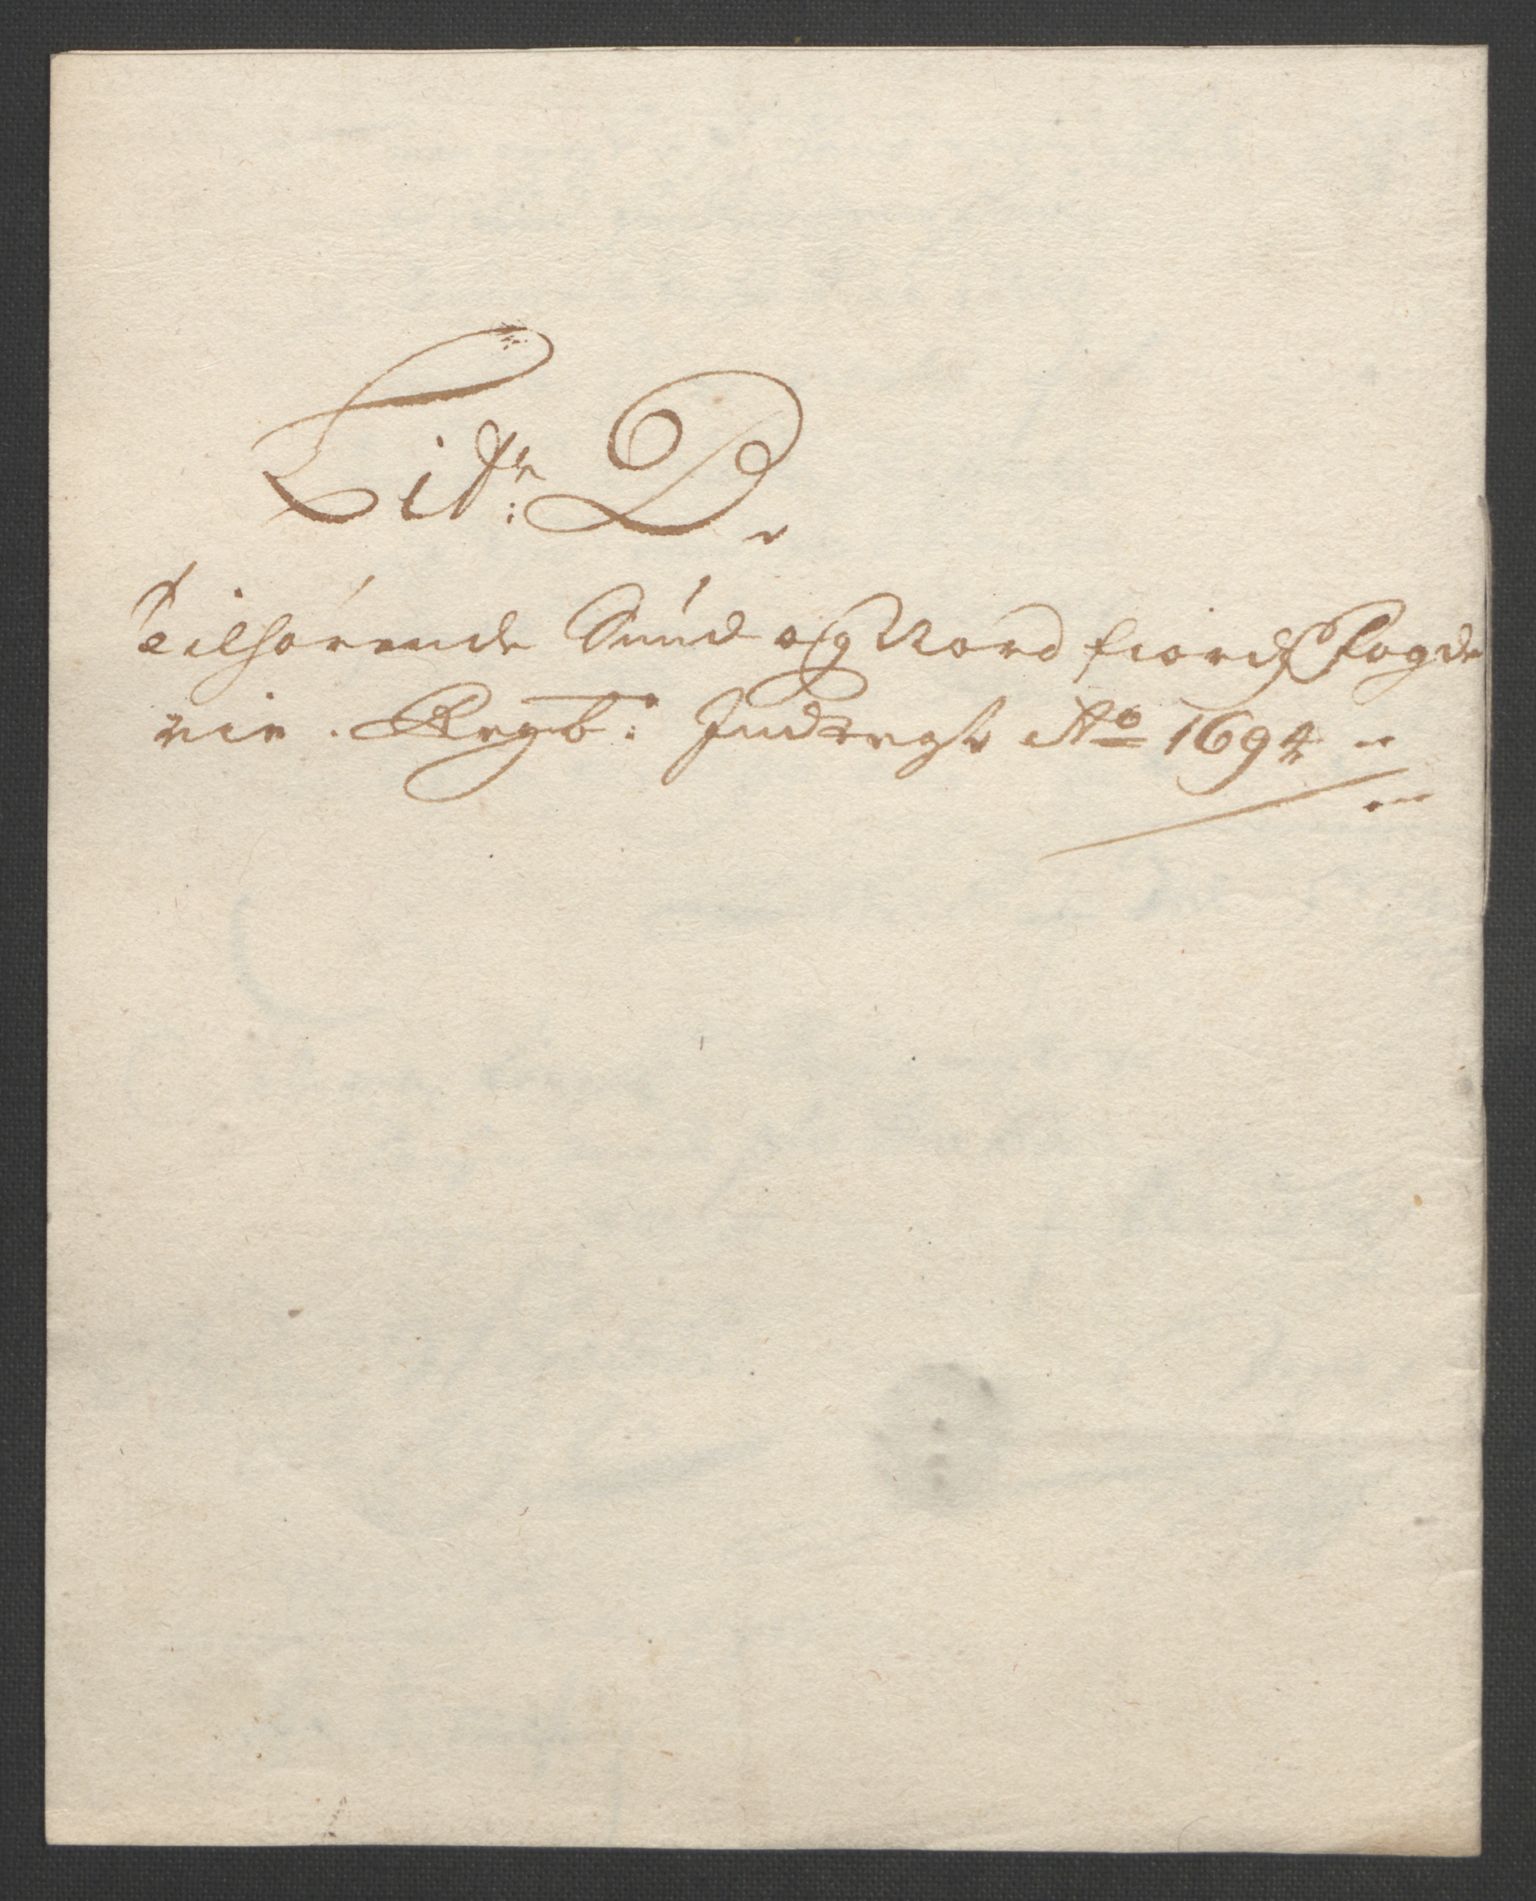 Litr: D.
Tilhørende Sund og Nordfiords Fogde
rie. Regb: Indtegt Ao 1694